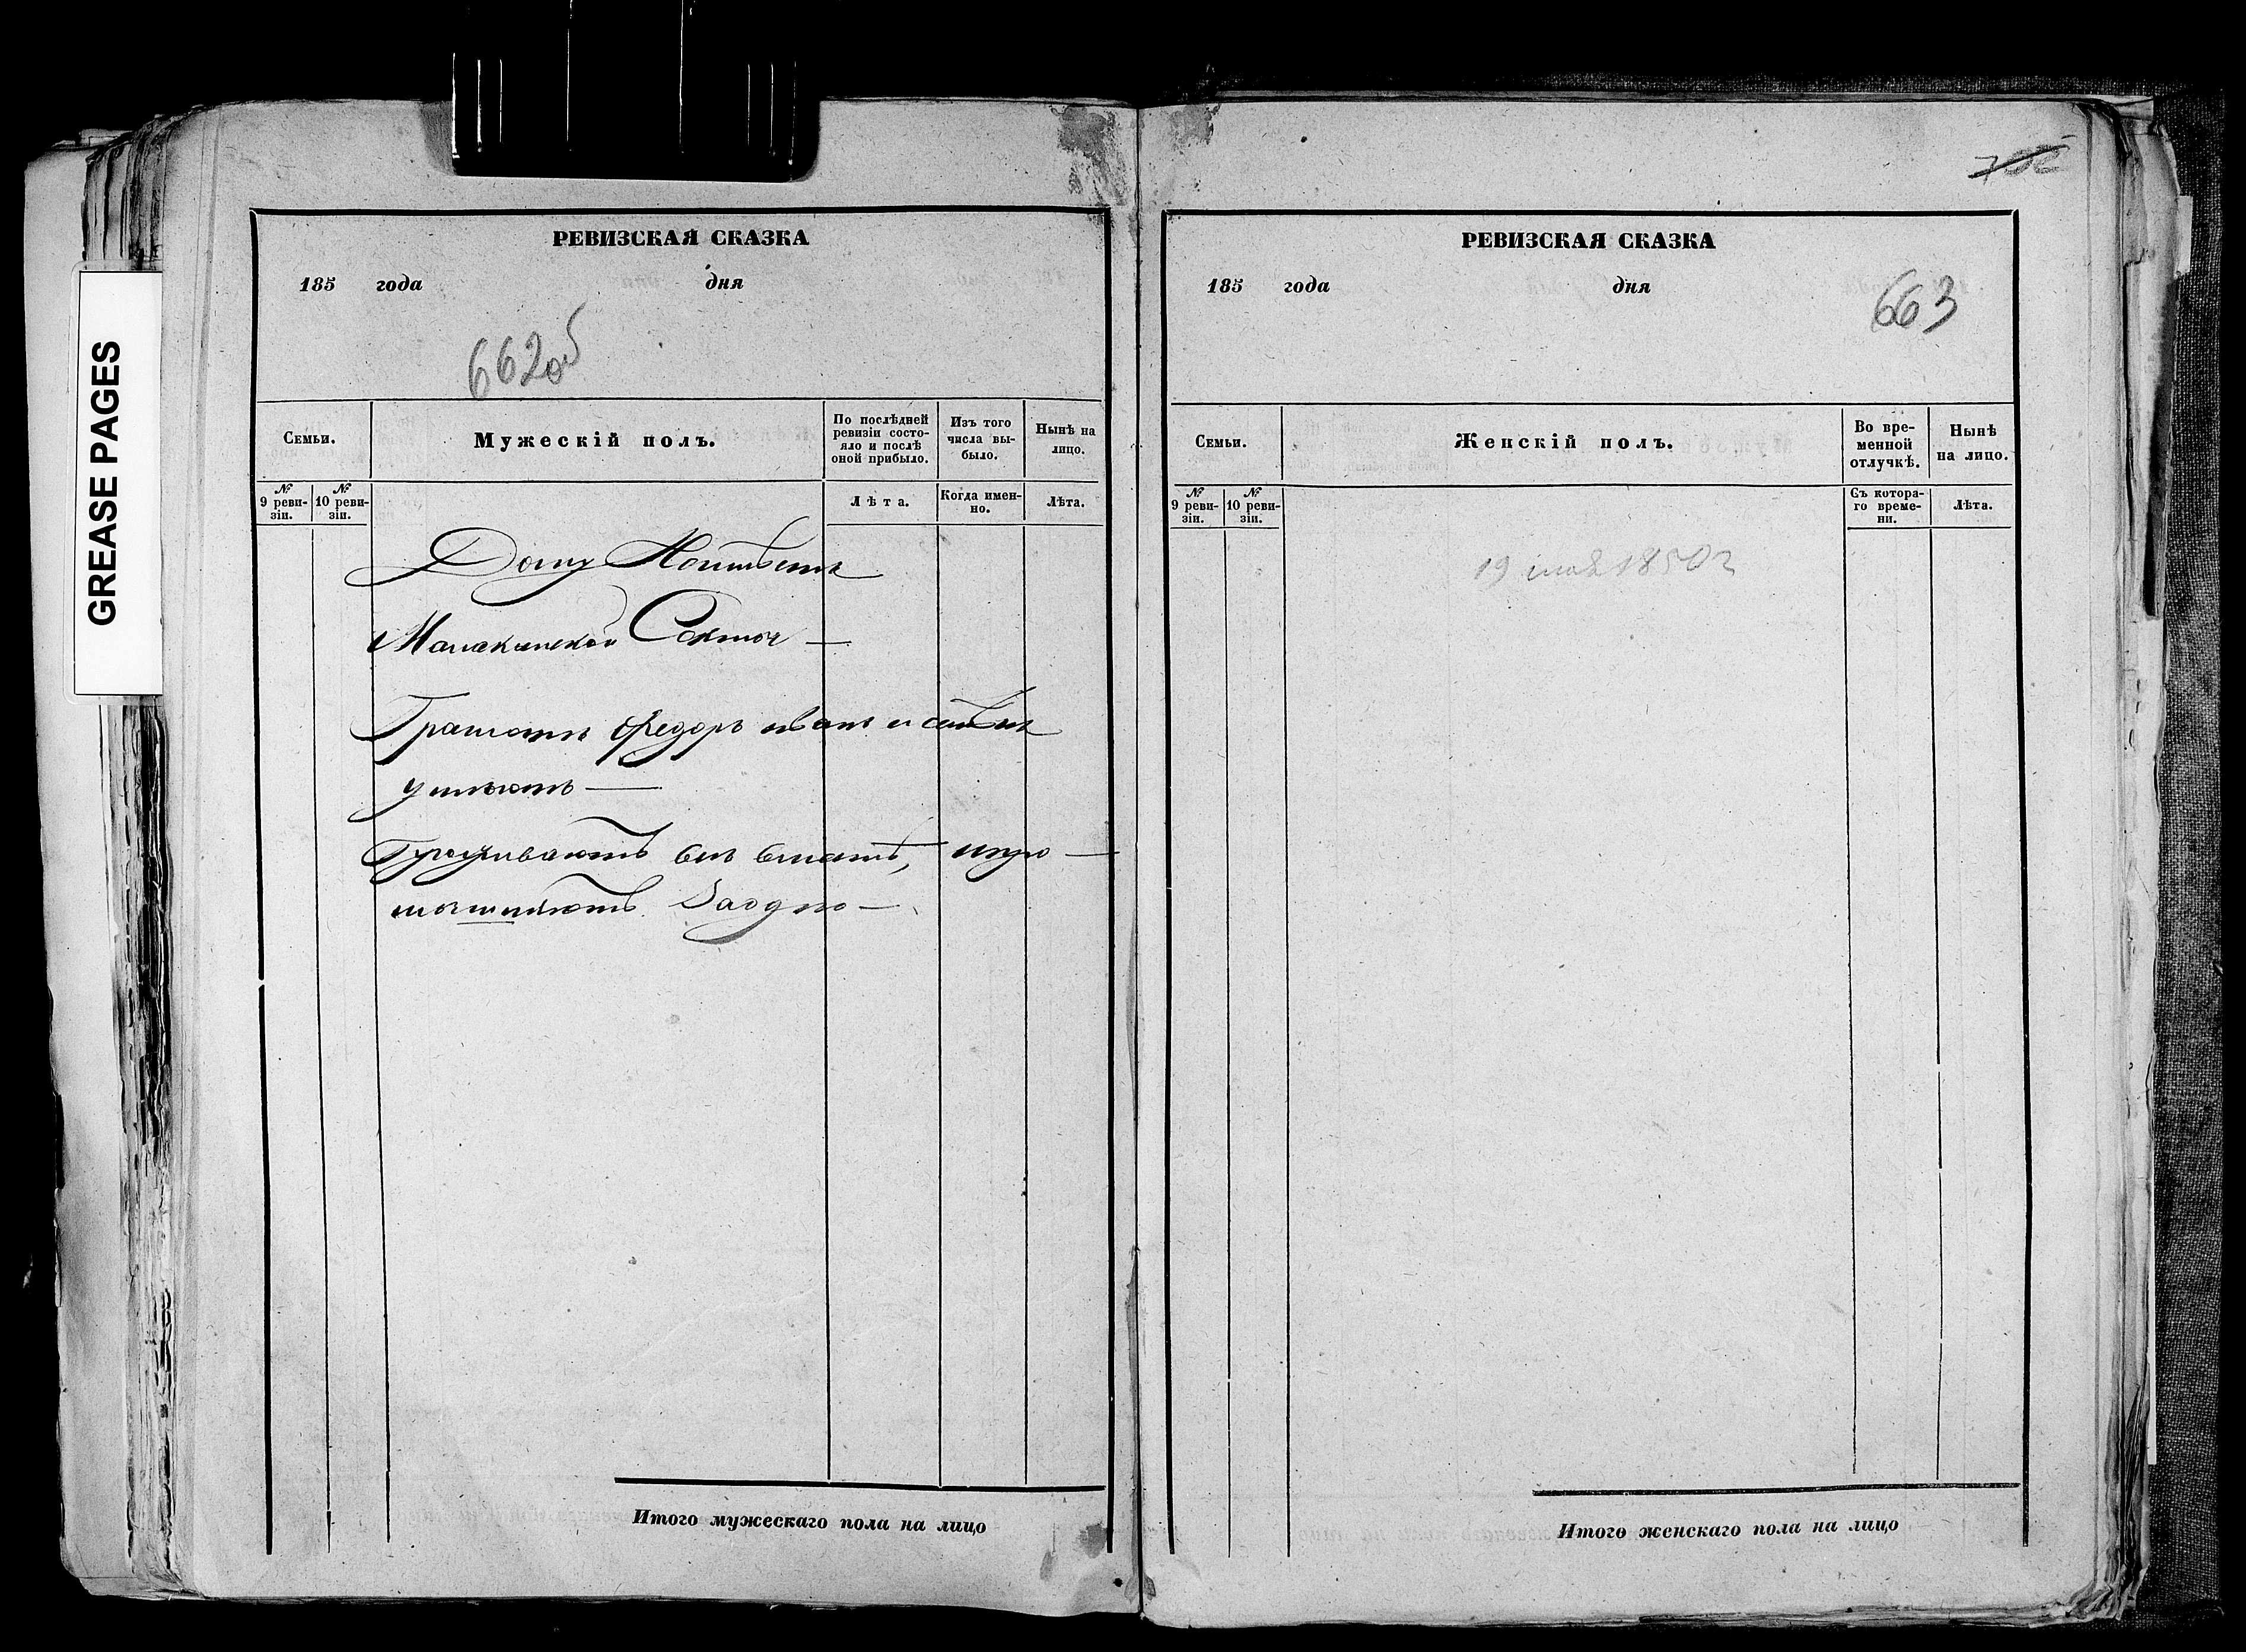 GREASE PAGES
РЕВИЗСКАЯ СКАЗКА
185 года дня
662об
Семьи.
Мужескій полъ.
По послѣдней ревизіи состо-
яло и послѣ
оной прибыло.
Изъ того
числа вы-
было.
Нынѣ на
лицо.
№
9 реви-
зіи.
№
10 реви-
зіи.
Лѣта.
Когда имен-
но.
Лѣта.
Молаканской Секты —
Грамотъ Федоръ иванъ и
умѣютъ —
Проживаютъ въ, ипро —
мышляютъ Заодно —
РЕВИЗСКАЯ СКАЗКА
185 года дня
663
Семьи.
Женскій полъ.
Во вре-
менной
отлучкѣ.
Нынѣ
на лицо.
№
9 реви-
зіи.
№
10 реви-
зіи.
Съ котора-
го време-
ни.
Лѣта.
19 мая 1850 г
Итого мужескаго пола на лицо
Итого женскаго пола на лицо